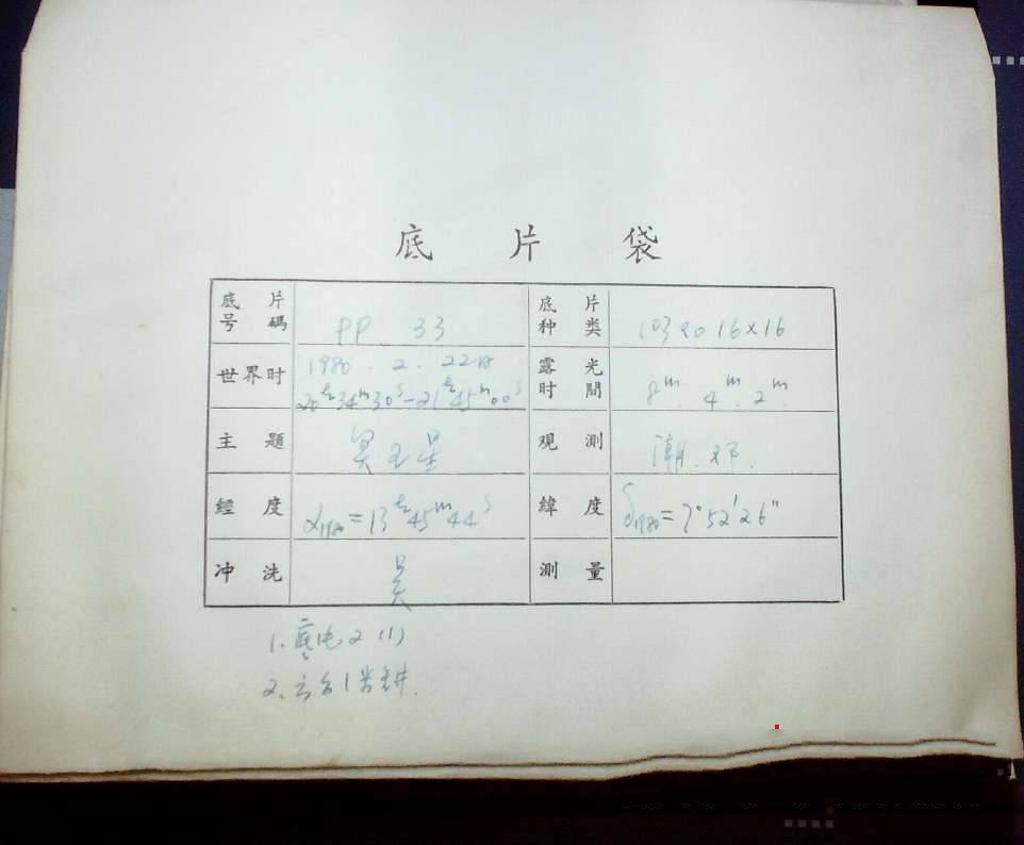 底 片 袋
底 片 号 碼 PP 33 底 片 种 类 103aO 16×16
世界时 1980.2.22日 20h34m30s-21h45m00s 露 光 时 間 8m. 4m. 2m.
主 題 冥王星 观 测 潮.邓.
經 度 α1980=13h45m44s 緯 度 δ1980=7°52′26″
冲 洗 吴 測 量
2.云台1米